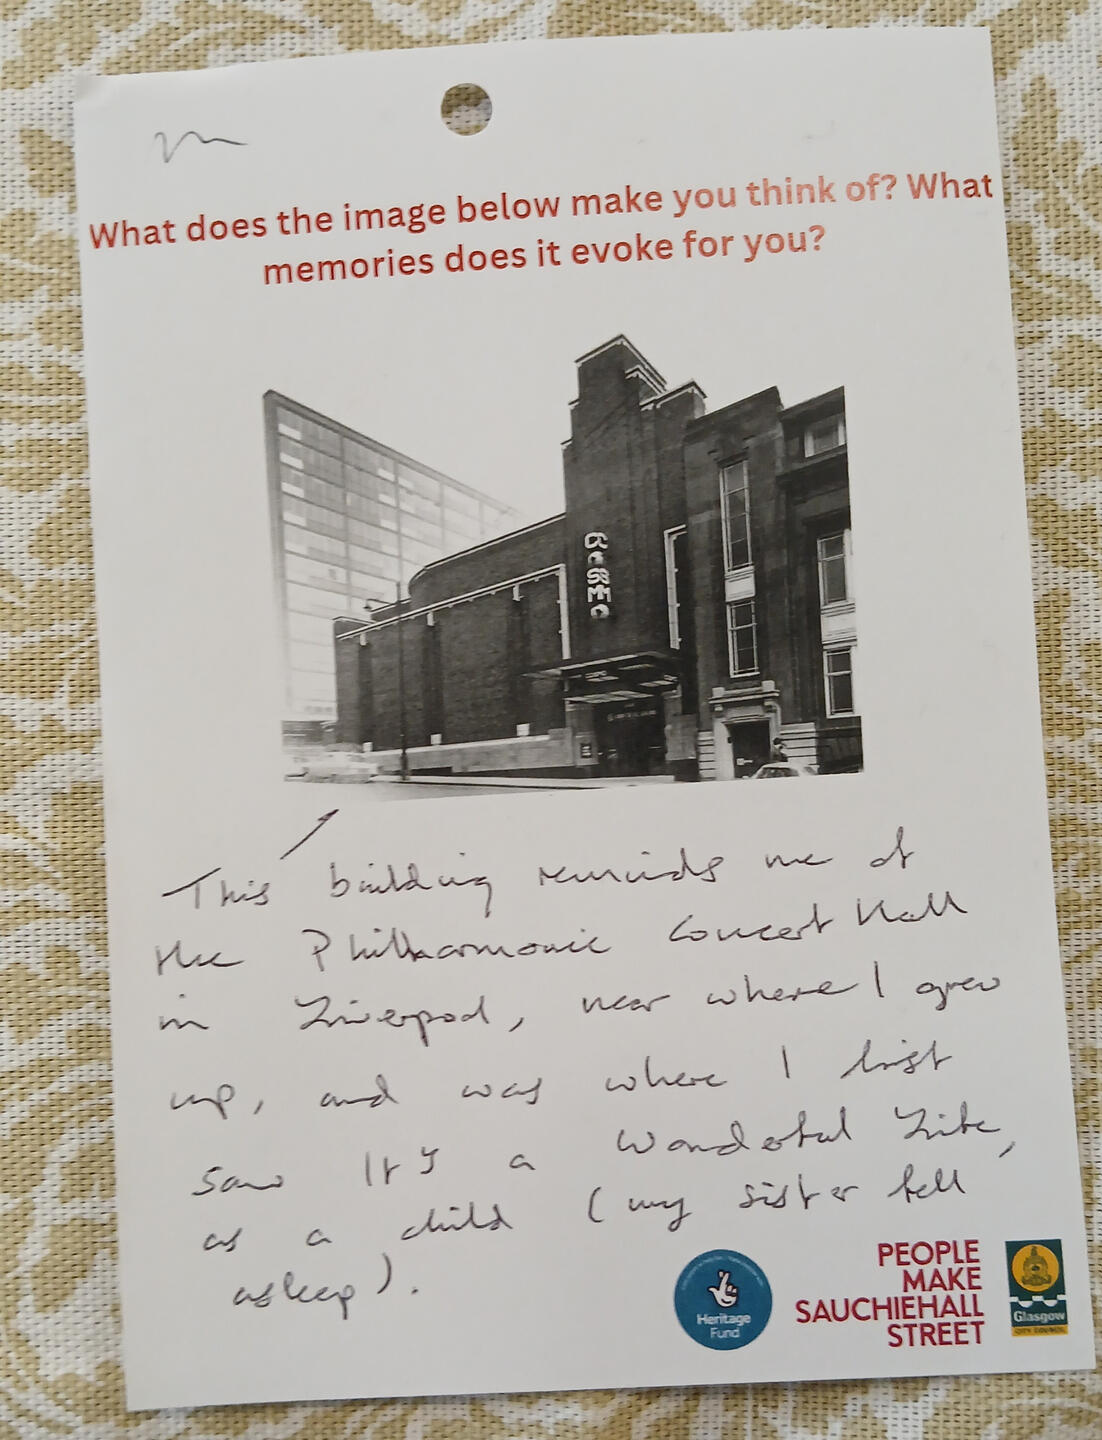 What does the image below make you think of? What
memories does it evoke for you?
COSMO
This building reminds me of
the Philharmonic Concert Hall
in Liverpool, near where I grew
up, and was where I first
saw It's a Wonderful Life,
as a child (my sister fell
asleep).
Heritage
Fund
PEOPLE
MAKE
SAUCHIEHALL
STREET
Glasgow
CITY COUNCIL